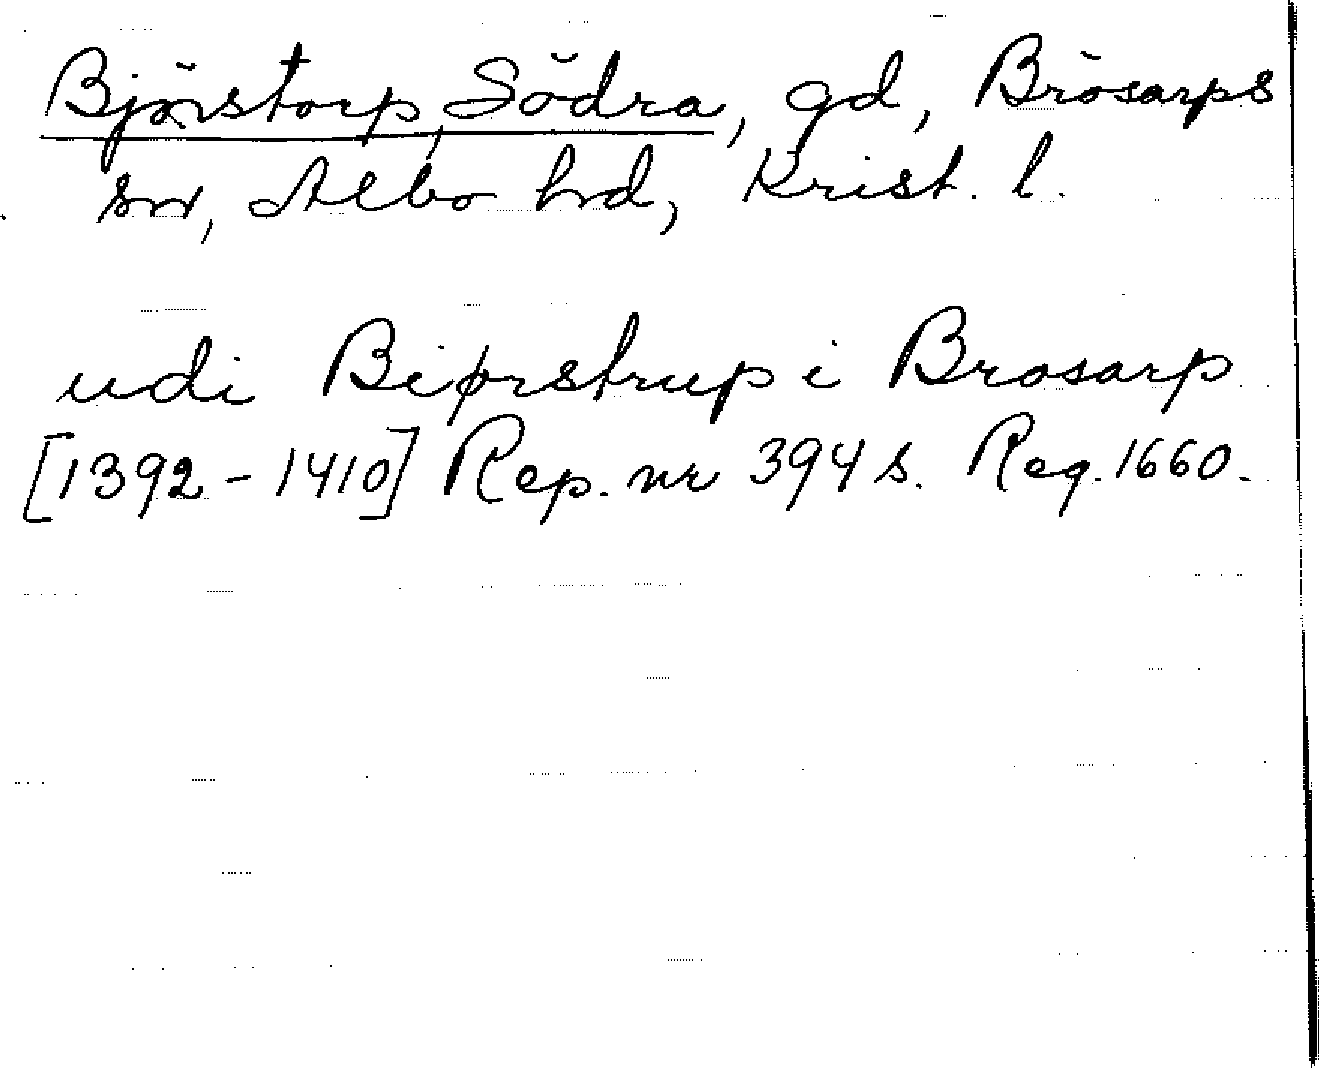 Björstorp, Södra, gd, Brösarps
sn, Albo hd, Krist. l.
udi Biørstrup i Brosarp
[1392-1410] Rep. nr 3948. Reg. 1660.